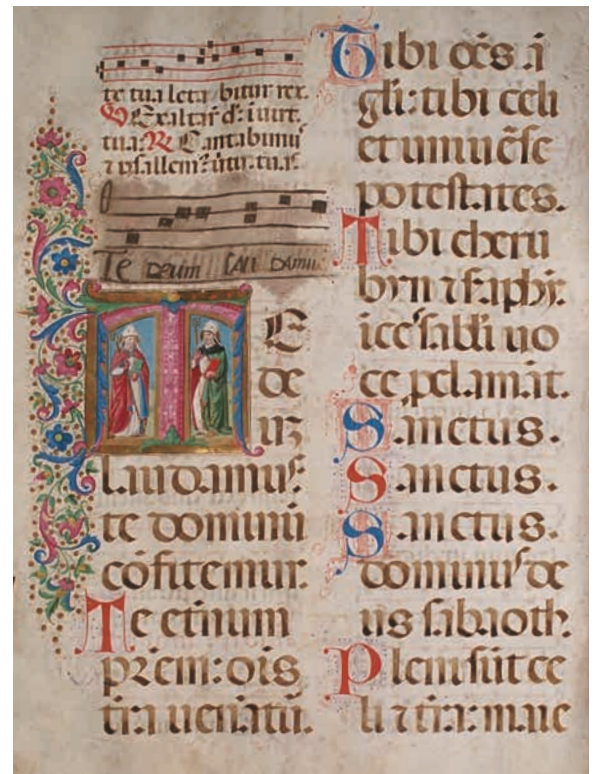 te tua leta bitur rex.
V Exaltar d: i uirt.
tua: R Cantabimus
⁊ psallem:
Te Deum Lau Damu
TE
de
uz
laudamus
te dominu
cōfitemur.
Te etnum
prem: ois
tra uenatū.
Tibi oēs ā
gli: tibi celi
et uniuēse
potestates.
Tibi cheru
byn ⁊ saphyn
icessabli uo
ce pclamāt.
Sanctus.
Sanctus.
Sanctus.
dominus de
us sabaoth.
Pleni sūt ce
li ⁊ tra: maie